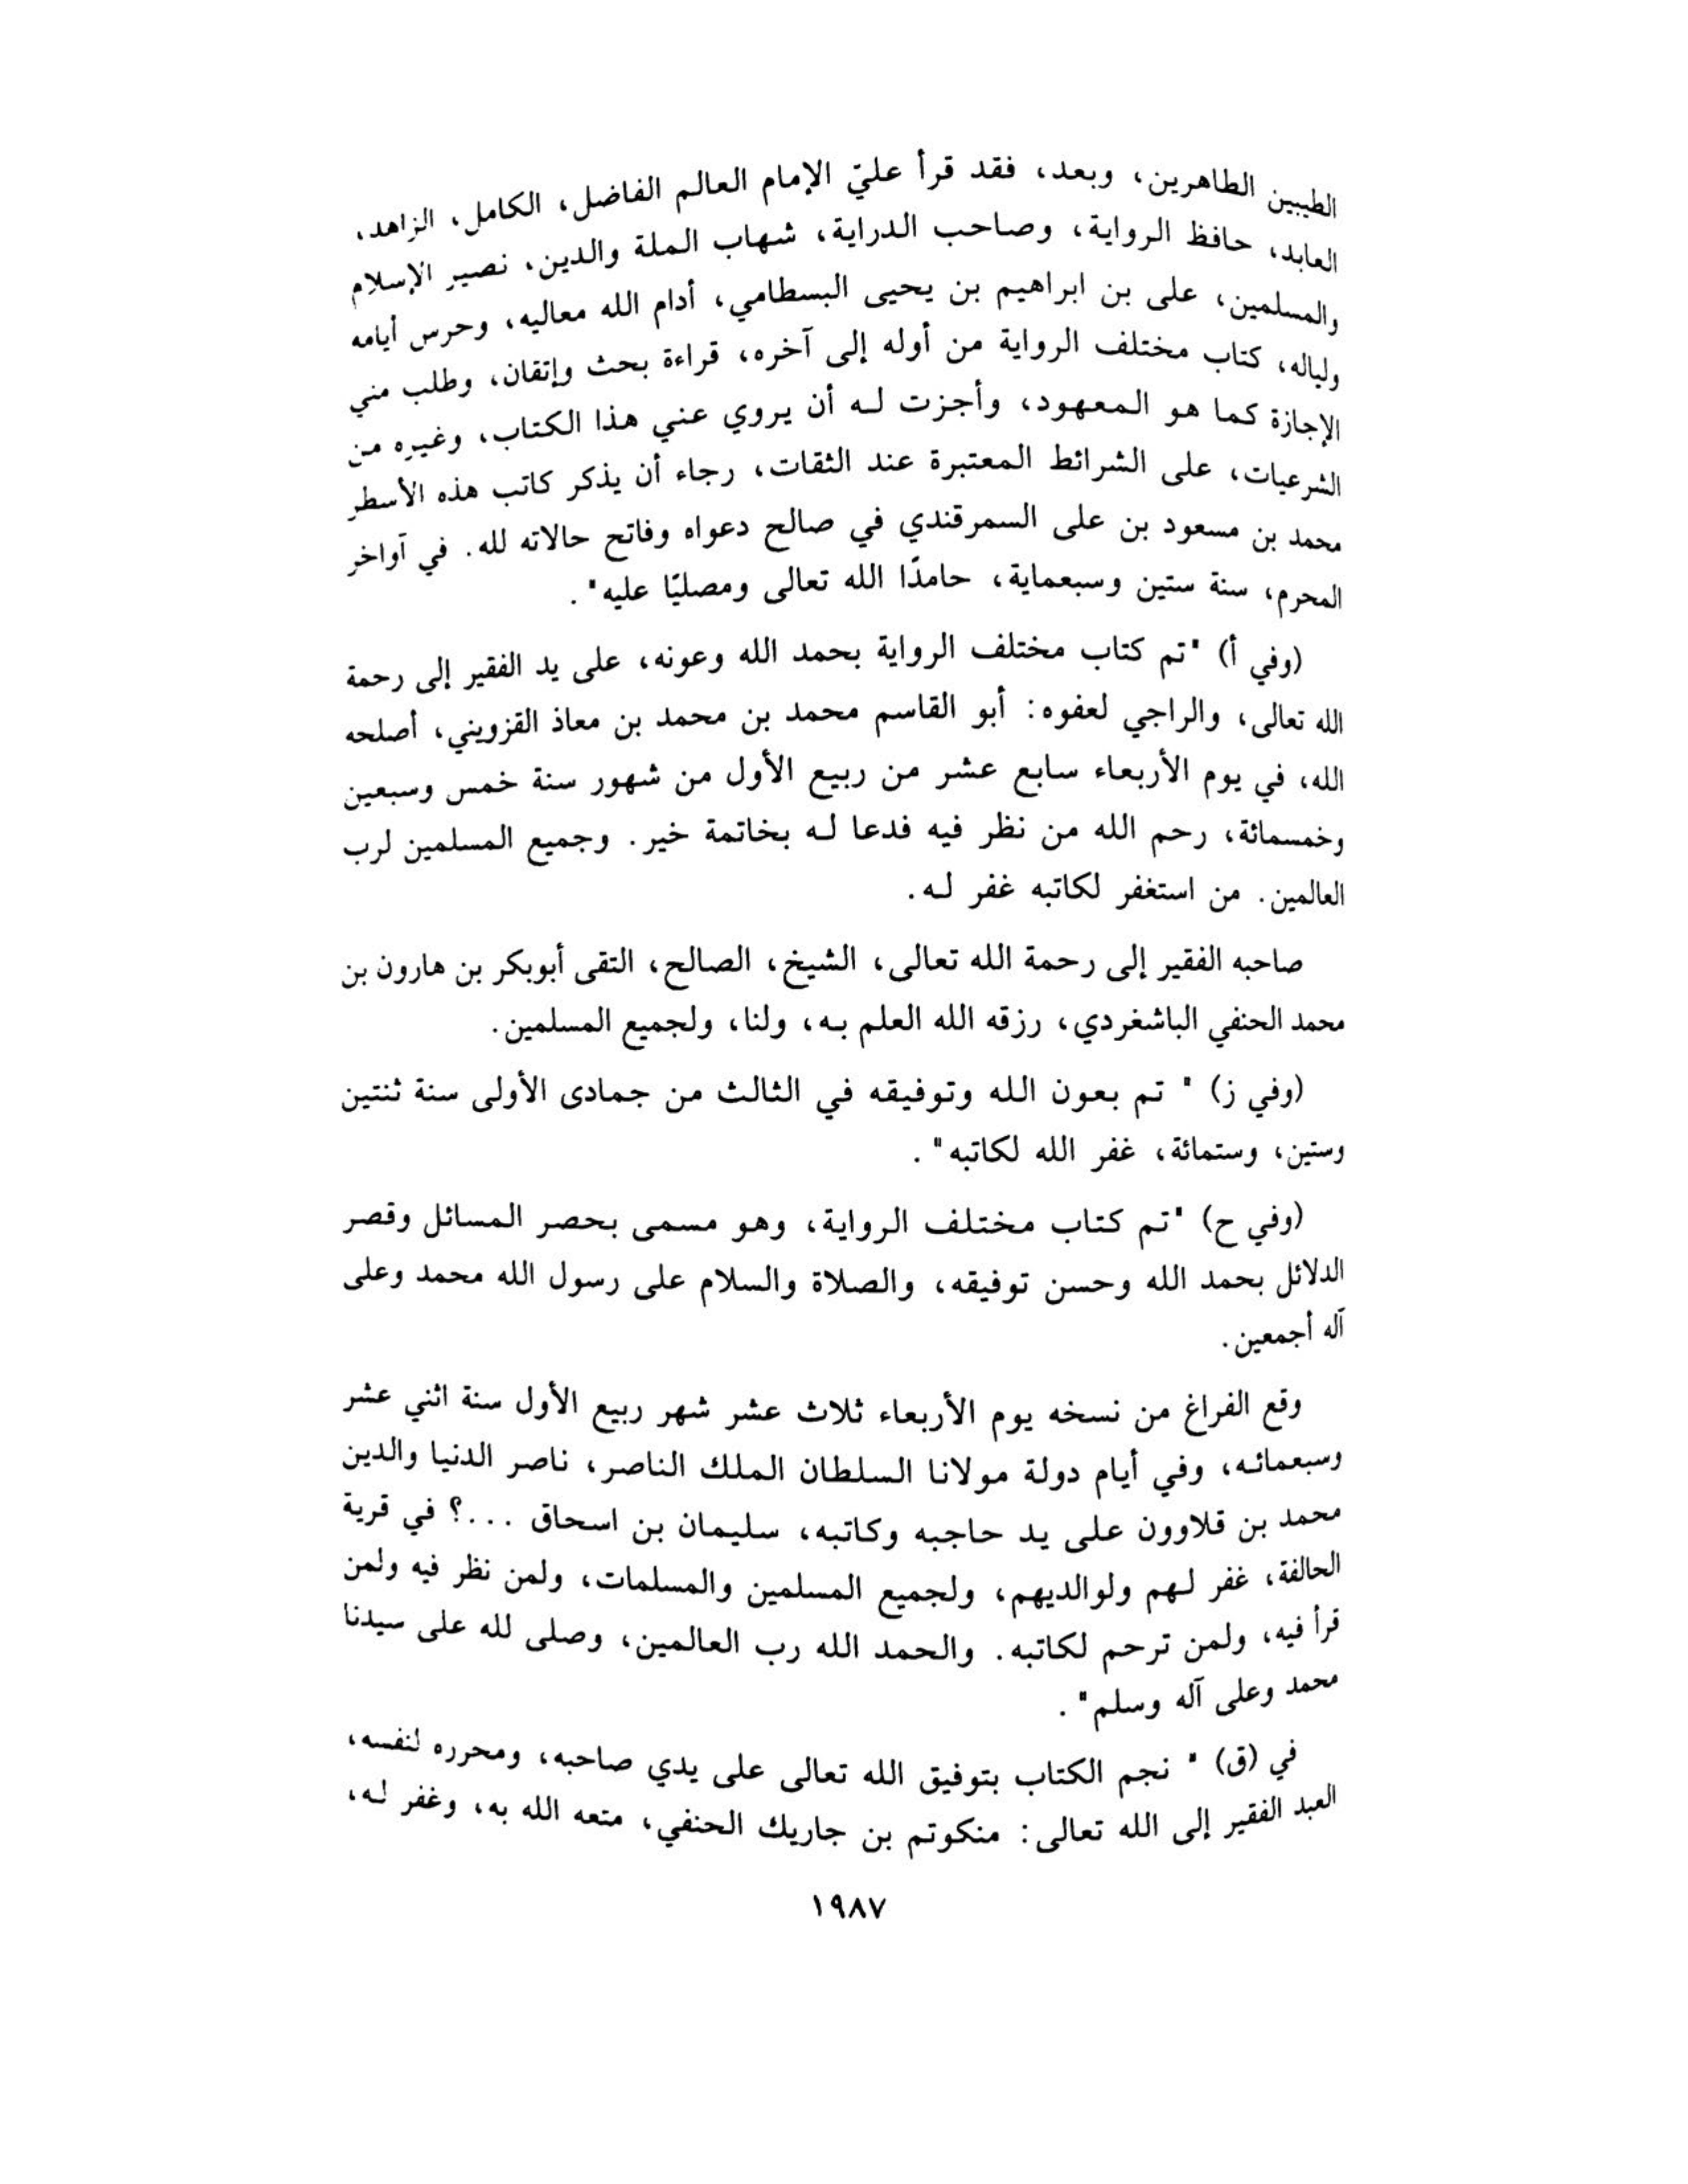 الطيبين الطاهرين، وبعد، فقد قرأ عليّ الإمام العالم الفاضل، الكامل، الزاهد،
العابد، حافظ الرواية، وصاحب الدراية، شهاب الملة والدين، نصير الإسلام
والمسلمين، على بن ابراهيم بن يحيى البسطامي، أدام الله معاليه، وحرس أيامه
ولياله، كتاب مختلف الرواية من أوله إلى آخره، قراءة بحث وإتقان، وطلب مني
الإجازة كما هو المعهود، وأجزت لـه أن يروي عني هذا الكتاب، وغيره من
الشرعيات، على الشرائط المعتبرة عند الثقات، رجاء أن يذكر كاتب هذه الأسطر
محمد بن مسعود بن على السمرقندي في صالح دعواه وفاتح حالاته لله. في آواخر
المحرم، سنة ستين وسبعماية، حامدًا الله تعالى ومصليًا عليه".
(وفي أ) "تم كتاب مختلف الرواية بحمد الله وعونه، على يد الفقير إلى رحمة
الله تعالى، والراجي لعفوه: أبو القاسم محمد بن محمد بن معاذ القزويني، أصلحه
الله، في يوم الأربعاء سابع عشر من ربيع الأول من شهور سنة خمس وسبعين
وخمسمائة، رحم الله من نظر فيه فدعا لـه بخاتمة خير. وجميع المسلمين لرب
العالمين. من استغفر لكاتبه غفر لـه.
صاحبه الفقير إلى رحمة الله تعالى، الشيخ، الصالح، التقى أبوبكر بن هارون بن
محمد الحنفي الباشغردي، رزقه الله العلم بـه، ولنا، ولجميع المسلمين.
(وفي ز) " تم بعون الله وتوفيقه في الثالث من جمادى الأولى سنة ثنتين
وستين، وستمائة، غفر الله لكاتبه".
(وفي ح) "تم كتاب مختلف الرواية، وهو مسمى بحصر المسائل وقصر
الدلائل بحمد الله وحسن توفيقه، والصلاة والسلام على رسول الله محمد وعلى
آله أجمعين.
وقع الفراغ من نسخه يوم الأربعاء ثلاث عشر شهر ربيع الأول سنة اثني عشر
وسبعمائـه، وفي أيام دولة مولانا السلطان الملك الناصر، ناصر الدنيا والدين
محمد بن قلاوون على يد حاجبه وكاتبه، سليمان بن اسحاق ...؟ في قرية
الحالفة، غفر لـهم ولوالديهم، ولجميع المسلمين والمسلمات، ولمن نظر فيه ولمن
قرأ فيه، ولمن ترحم لكاتبه. والحمد الله رب العالمين، وصلى لله على سيدنا
محمد وعلى آله وسلم".
في (ق) " نجم الكتاب بتوفيق الله تعالى على يدي صاحبه، ومحرره لنفسه،
العبد الفقير إلى الله تعالى: منكوتم بن جاريك الحنفي، متعه الله به، وغفر لـه،
١٩٨٧